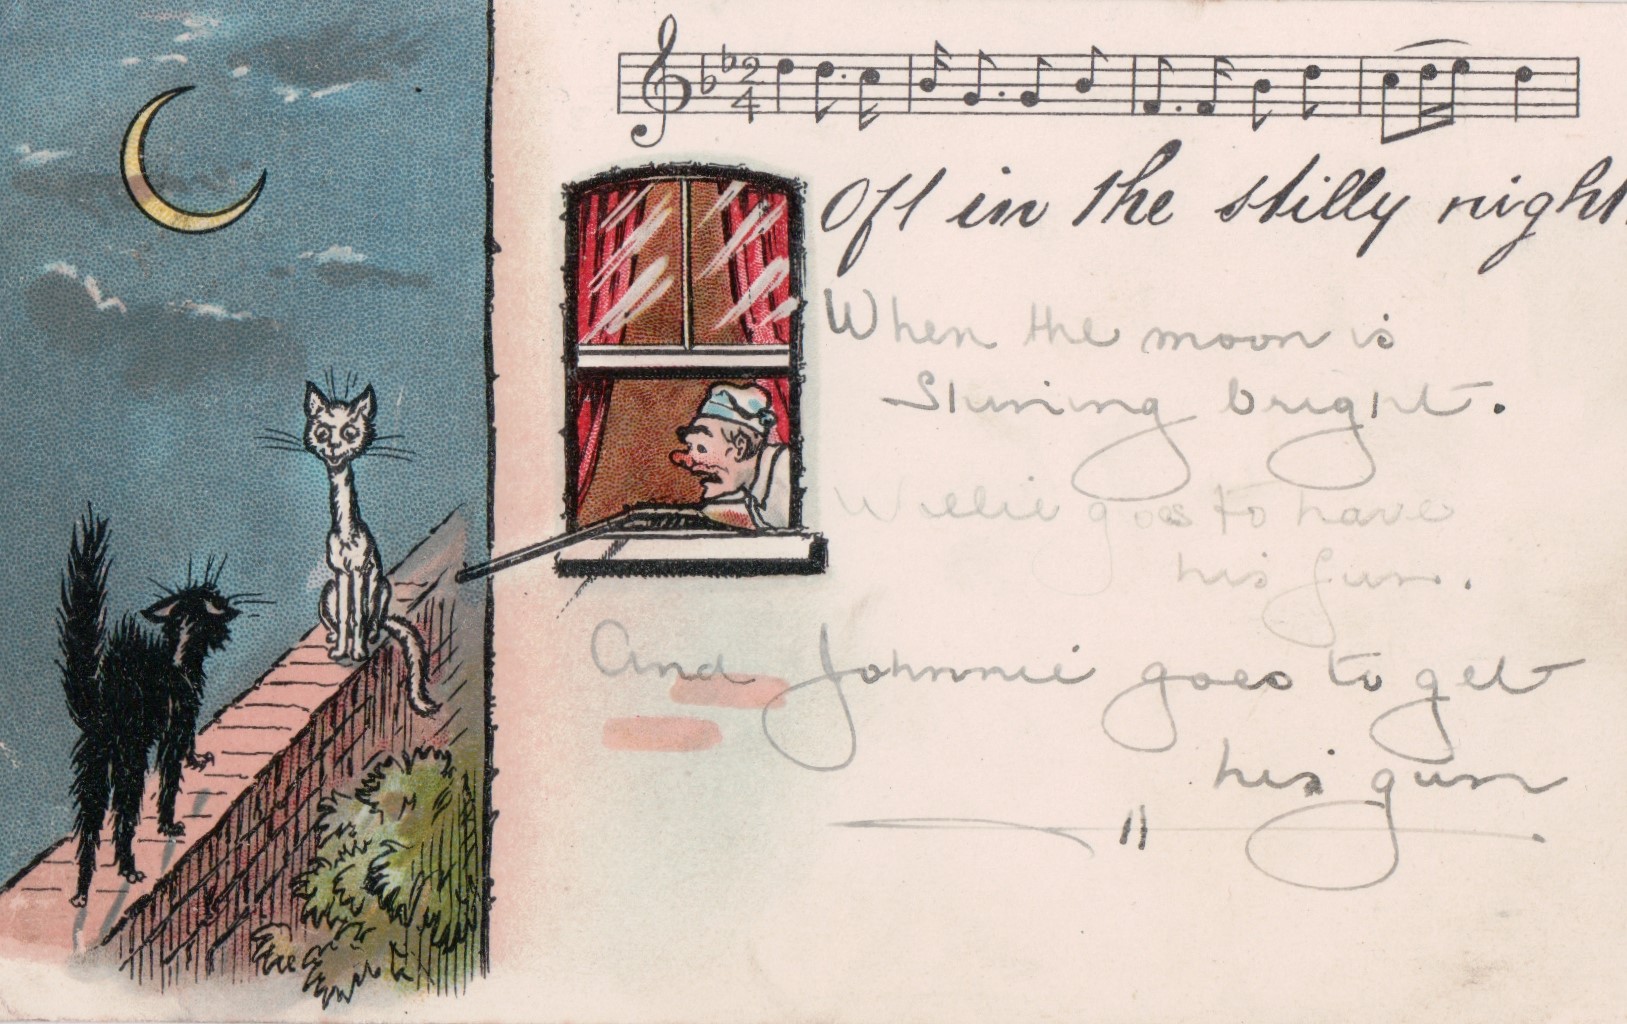 Oft in the stilly night.
When the moon is
Shining bright.
Willie goes to have
his fun.
And Johnnie goes to get
his gun